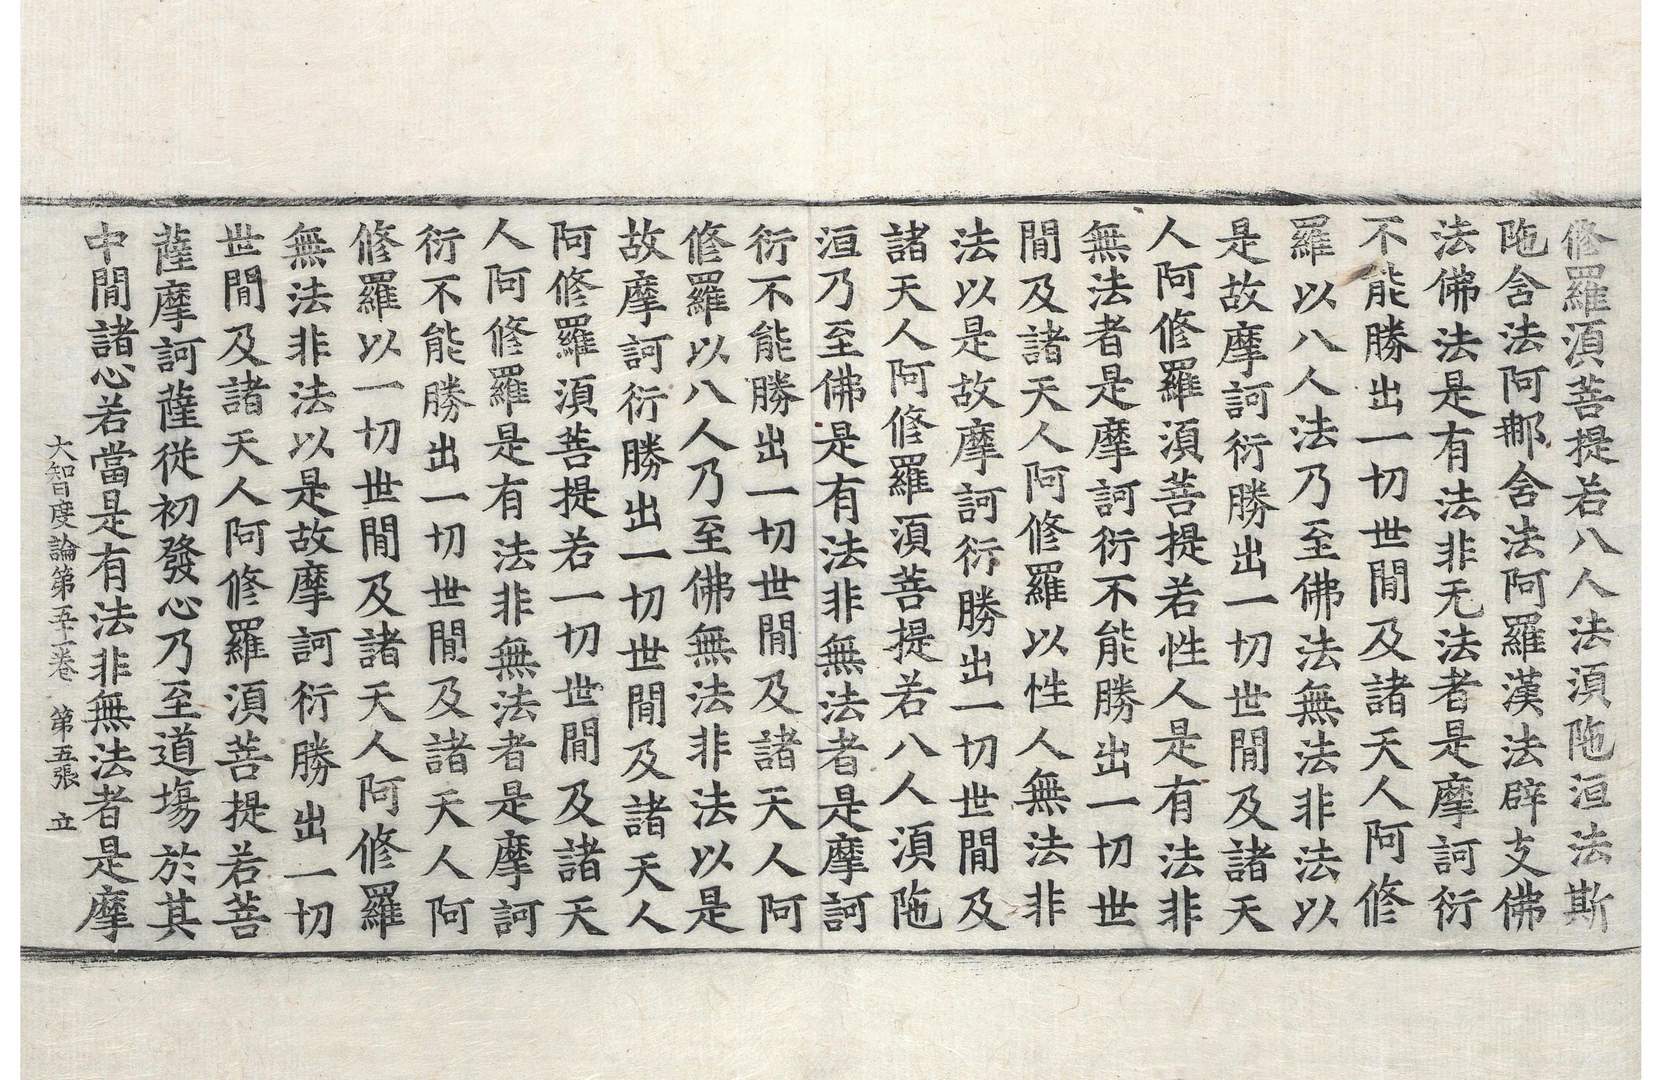 修羅湏菩提若八人法湏陁洹法斯
陁含法阿那含法阿羅漢法辟支佛
法佛法是有法非无法者是摩訶衍
不能勝出一切世閒及諸天人阿修
羅以八人法乃至佛法無法非法以
是故摩訶衍勝出一切世閒及諸天
人阿修羅湏菩提若性人是有法非
無法者是摩訶衍不能勝出一切世
閒及諸天人阿修羅以性人無法非
法以是故摩訶衍勝出一切世閒及
諸天人阿修羅湏菩提若八人湏陁
洹乃至佛是有法非無法者是摩訶
衍不能勝出一切世閒及諸天人阿
修羅以八人乃至佛無法非法以是
故摩訶衍勝出一切世閒及諸天人
阿修羅湏菩提若一切世閒及諸天
人阿修羅是有法非無法者是摩訶
衍不能勝出一切世閒及諸天人阿
修羅以一切世閒及諸天人阿修羅
無法非法以是故摩訶衍勝出一切
世閒及諸天人阿修羅湏菩提若菩
薩摩訶薩從初發心乃至道塲於其
中閒諸心若當是有法非無法者是摩
大智度論第五十一卷 第五張 立